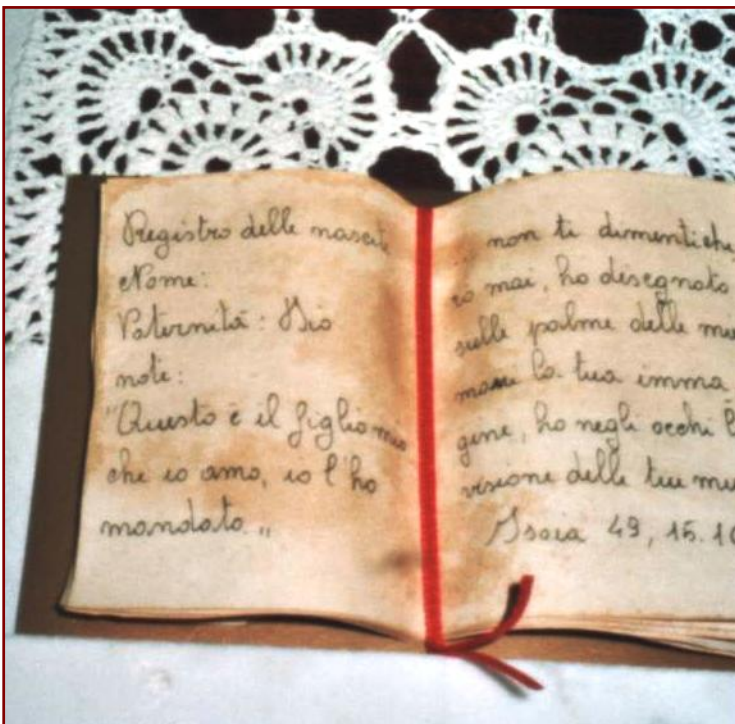 Registro delle nascite
Nome:
Paternità: Dio
note:
"Questo è il figlio mio
che io amo, io l'ho
mandato„
... non ti dimentiche,
rò mai, ho disegnato
sulle palme delle
mani la tua imma
gine, ho negli occhi
visione delle tue
Isaia 49, 15.